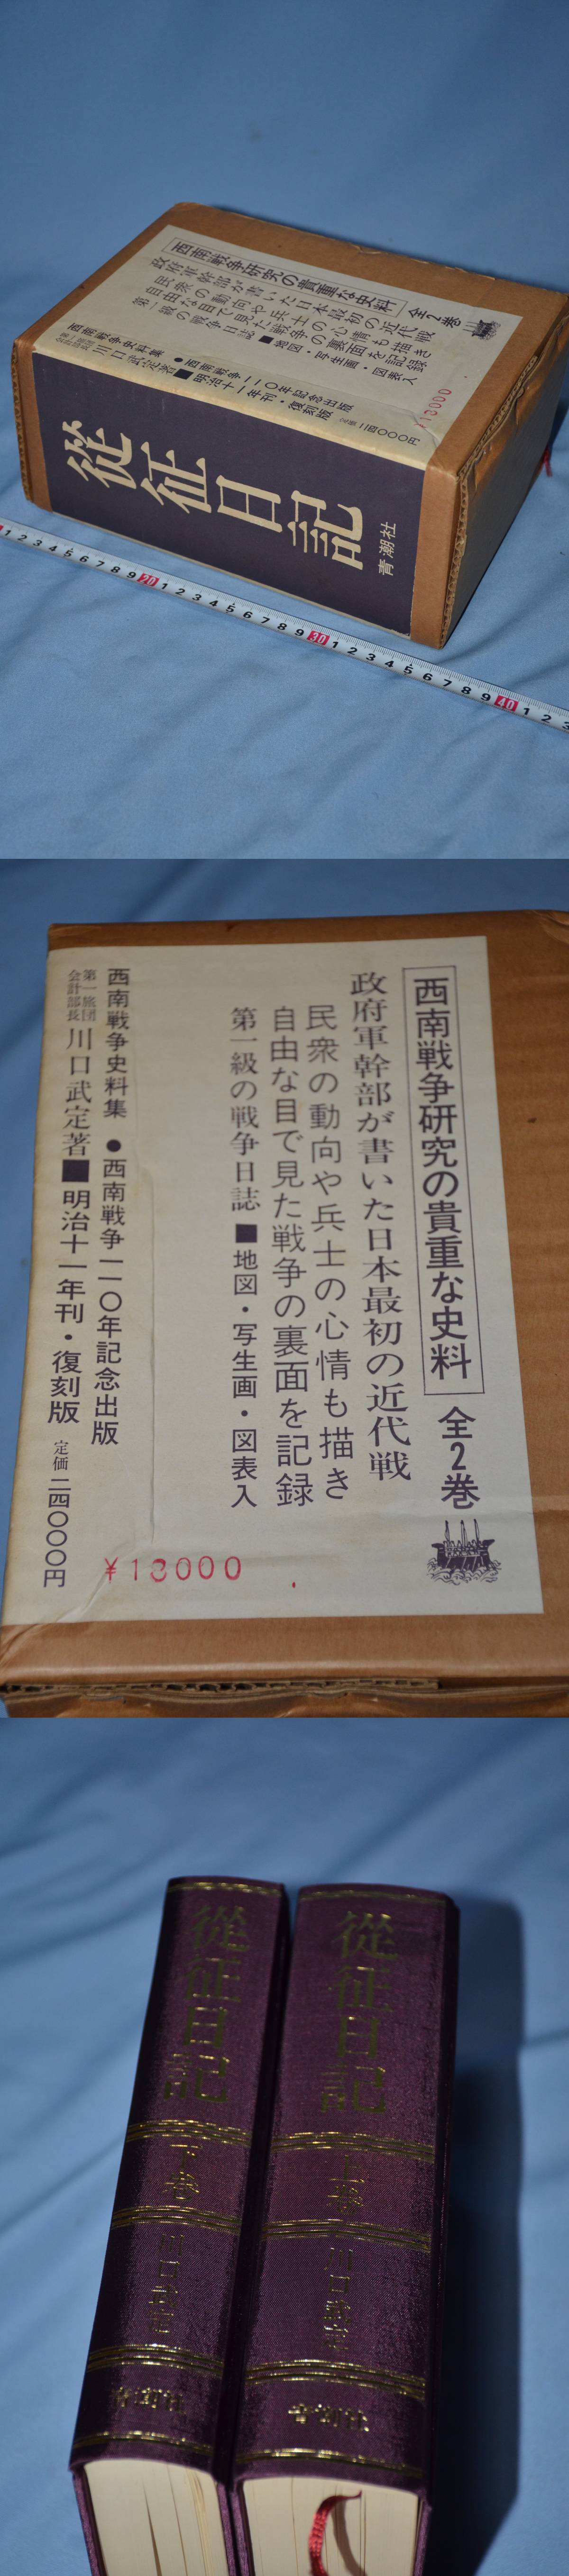 西南戦争研究の貴重な史料 全2巻
政府軍幹部が書いた日本最初の近代戦
民衆の動向や兵士の心情も描き
自由な目で見た戦争の裏面を記録
第一級の戦争日誌■地図・写生画・図表入
¥18000
西南戦争史料集 ●西南戦争一一〇年記念出版
第一旅団会計部長 川口武定著■明治十一年刊・復刻版
定価 二四〇〇〇円
從征日記
青潮社
1 2 3 4 5 6 7 8 9 20 1 2 3 4 5 6 7 8 9 30 1 2 3 4 5 6 7 8 9 40 1 2 3
西南戦争研究の貴重な史料 全2巻
政府軍幹部が書いた日本最初の近代戦
民衆の動向や兵士の心情も描き
自由な目で見た戦争の裏面を記録
第一級の戦争日誌■地図・写生画・図表入
¥18000
西南戦争史料集 ●西南戦争一一〇年記念出版
第一旅団
会計部長 川口武定著■明治十一年刊・復刻版 定価 二四〇〇〇円
從征日記 上巻 川口武定 青潮社
從征日記 下巻 川口武定 青潮社